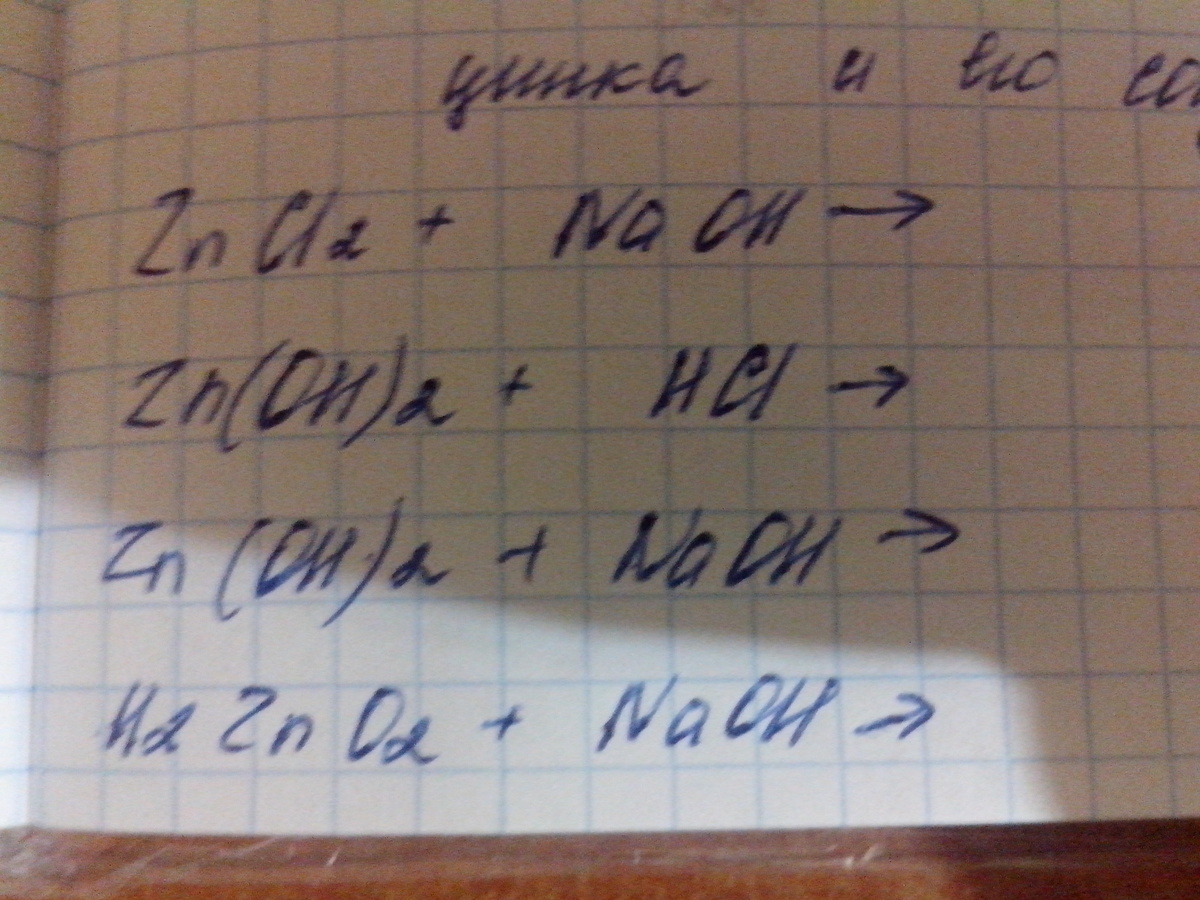 цинка и его
ZnCl2 + NaOH →
Zn(OH)2 + HCl →
Zn(OH)2 + NaOH →
H2ZnO2 + NaOH →